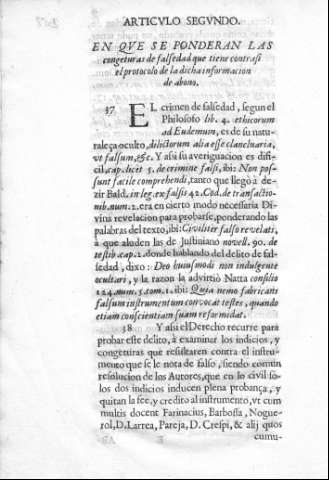 ARTICVLO SEGVNDO.
EN QVE SE PONDERAN LAS
congeturas de falsedad que tiene contra si
el protocolo de la dicha informacion
de abono.
37 EL crimen de falsedad, segun el
Philosofo lib. 4. ethicorum
ad Eudemum, es de su natu-
raleça oculto, dilictorum alia esse clancularia,
vt falsum, &c. Y asi su averiguacion es difi-
cil, cap. licèt 5. de crimine falsi, ibi: Non pos-
sunt facile comprehendi, tanto que llegò à de-
zir Bald. in leg. ex falsis 42. Cod. de transactio-
nib. num. 2. era en cierto modo necessaria Di-
vina revelacion para probarse, ponderando las
palabras del texto, ibi: Civiliter falso revelati,
à que aluden las de Justiniano novell. 90. de
testib. cap. 2. donde hablando del delito de fal-
sedad, dixo: Deo huiusmodi non indulgente
occultari, y la razon la advirtiò Natta consilio
124. num. 5. tom. 1. ibi: Quia nemo fabricans
falsum instrumentum convocat testes, quando
etiam conscientiam suam reformidat.
38 Y asi el Derecho recurre para
probar este delito, à examinar los indicios, y
congeturas que resultaren contra el instru-
mento que se le nota de falso, siendo comun
resolucion de los Autores, que en lo civil so-
los dos indicios inducen plena probança, y
quitan la fee, y credito al instrumento, vt cum
multis docent Farinacius, Barbossa, Nogue-
rol, D. Larrea, Pareja, D. Crespi, & alij quos
cumu-